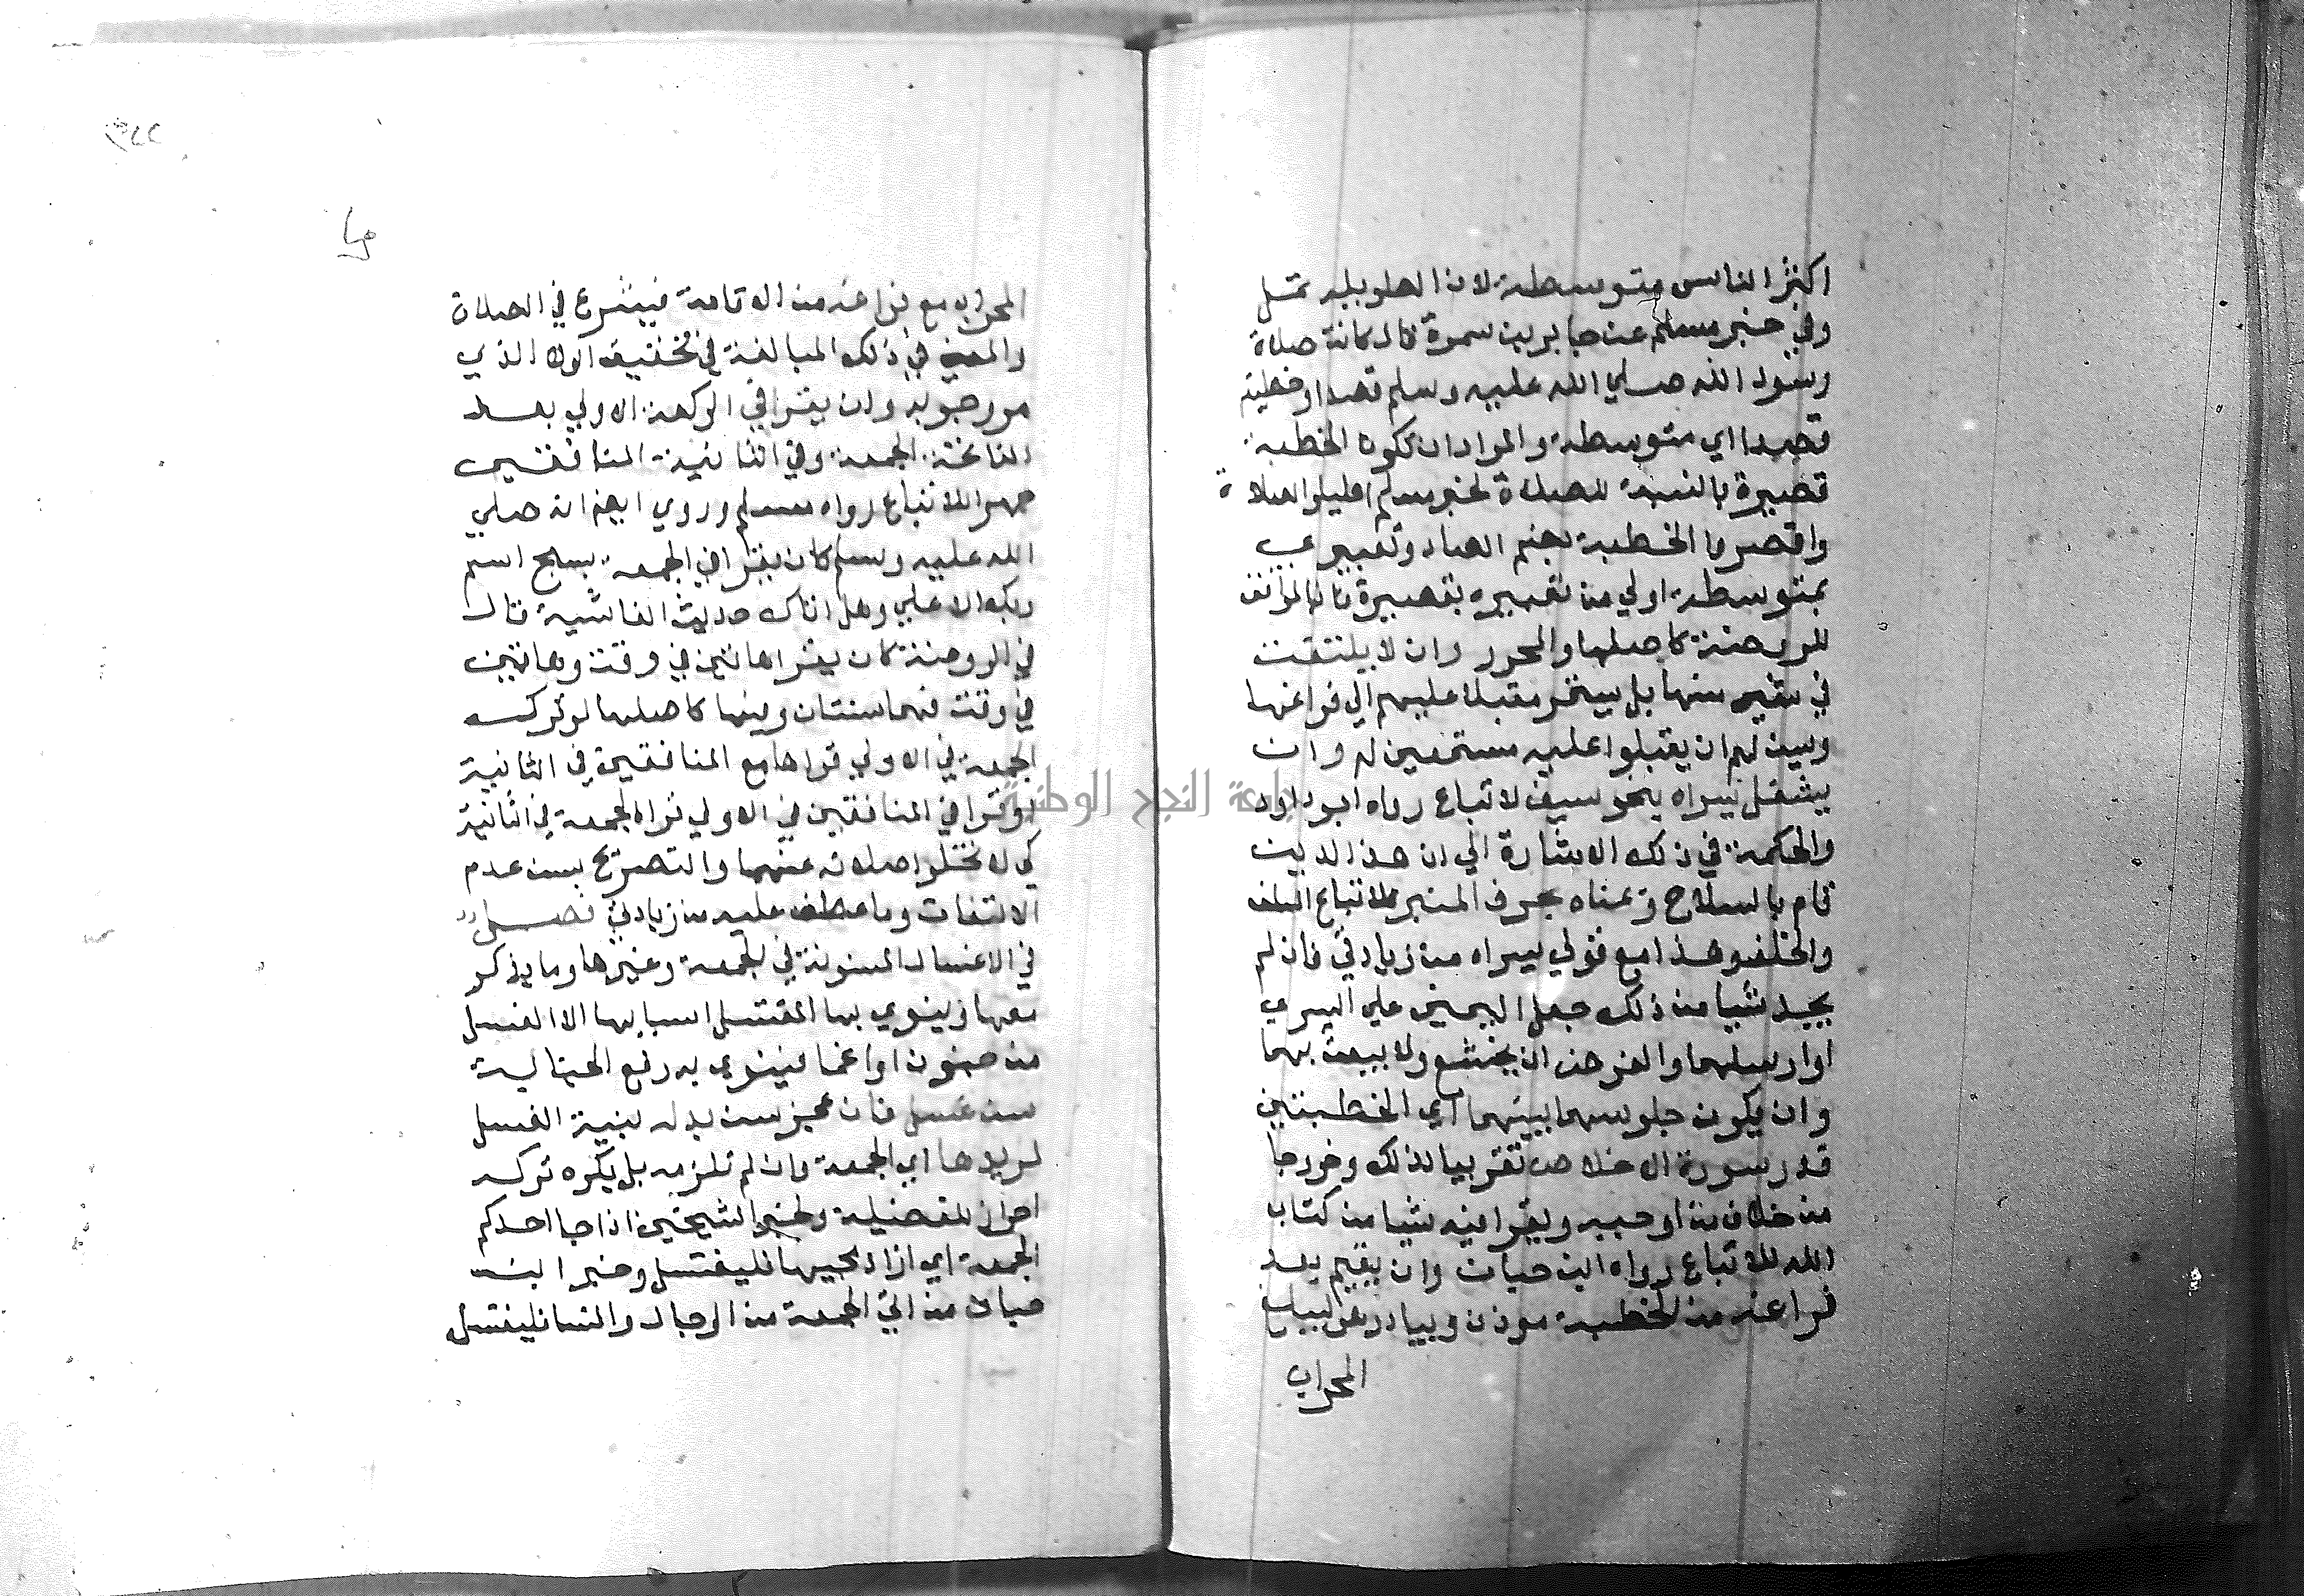 اكثر الناس متوسطة لان الطويلة تمل
وفي خبر مسلم عن جابر بن سمرة قال كانت صلاة
رسول الله صلي الله عليه وسلم قصدا وخطبته
قصدا اي متوسطة والمراد ان تكون الخطبة
قصيرة بالنسبة للصلاة لخبر مسلم اطيلوا الصلاة
واقصروا الخطبة بضم الصاد وتعبيري
بمتوسطة اولي من تعبيره بقصيرة فانه الموافق
للروضة كاصلها والمحرر وان لا يلتفت
في شي منها بل يستمر مقبلا عليهم الي فراغها
وسن لهم ان يقبلوا عليه مستمعين له وان
يشغل يسراه بنحو سيف لاتباع رواه ابو داود
والحكمة في ذلك الاشارة الي ان هذا الدين
قام بالسلاح ويمناه بحرف المنبر للاتباع السلف
والخلف وهذا مع قولي يسراه من زيادتي فان لم
يجد شيا من ذلك جعل اليمين علي اليسري
او ارسلهما والغرض ان يخشع ولا يعبث بهما
وان يكون جلوسهما بينهما اي الخطبتين
قدر سورة الاخلاص تقريبا لذلك وخروجا
من خلاف من اوجبه ويقرا فيه شيا من كتاب
الله للاتباع رواه ابن حبان وان يقيم بعد
فراغه من الخطبة موذن ويبادر هو ليبلغ
المحراب
المحراب مع فراغه من الاقامة فيشرع في الصلاة
والمعني في ذلك المبالغة في تحقيق الولا الذي
مر وجوبه وان يقرا في الركعة الاولي بعد
الفاتحة الجمعة وفي الثانية المنافقين
جهرا للاتباع رواه مسلم وروي ايضا انه صلي
الله عليه وسلم كان يقرا في الجمعة بسبح اسم
ربك الاعلي وهل اتاك حديث الغاشية قال
في الروضة كان يقرا هاتين في وقت وهاتين
في وقت فهما سنتان وفيها كاصلها لو ترك
الجمعة في الاولي قراها مع المنافقين في الثانية
او قرا في المنافقين في الاولي قرا الجمعة في الثانية
كي لا تخلو صلاته عنهما والتصريح بسن عدم
الالتفات وما عطف عليه من زيادتي فصل
في الاغسال المسنونة في الجمعة وغيرها وما يذكر
معها وينوي بها المغتسل اسبابها الا الغسل
من جنون او اغما فينوي به رفع الجنابة
سن غسل فان عجز سن بدله بنية الغسل
لمريدها اي الجمعة وان لم تلزمه بل يكره تركه
احرازا للفضيلة ولخبر الشيخين اذا جا احدكم
الجمعة اي اراد مجيها فليغتسل وخبر ابن
حبان من اتي الجمعة من الرجال والنسا فليغتسل
جامعة النجاح الوطنية